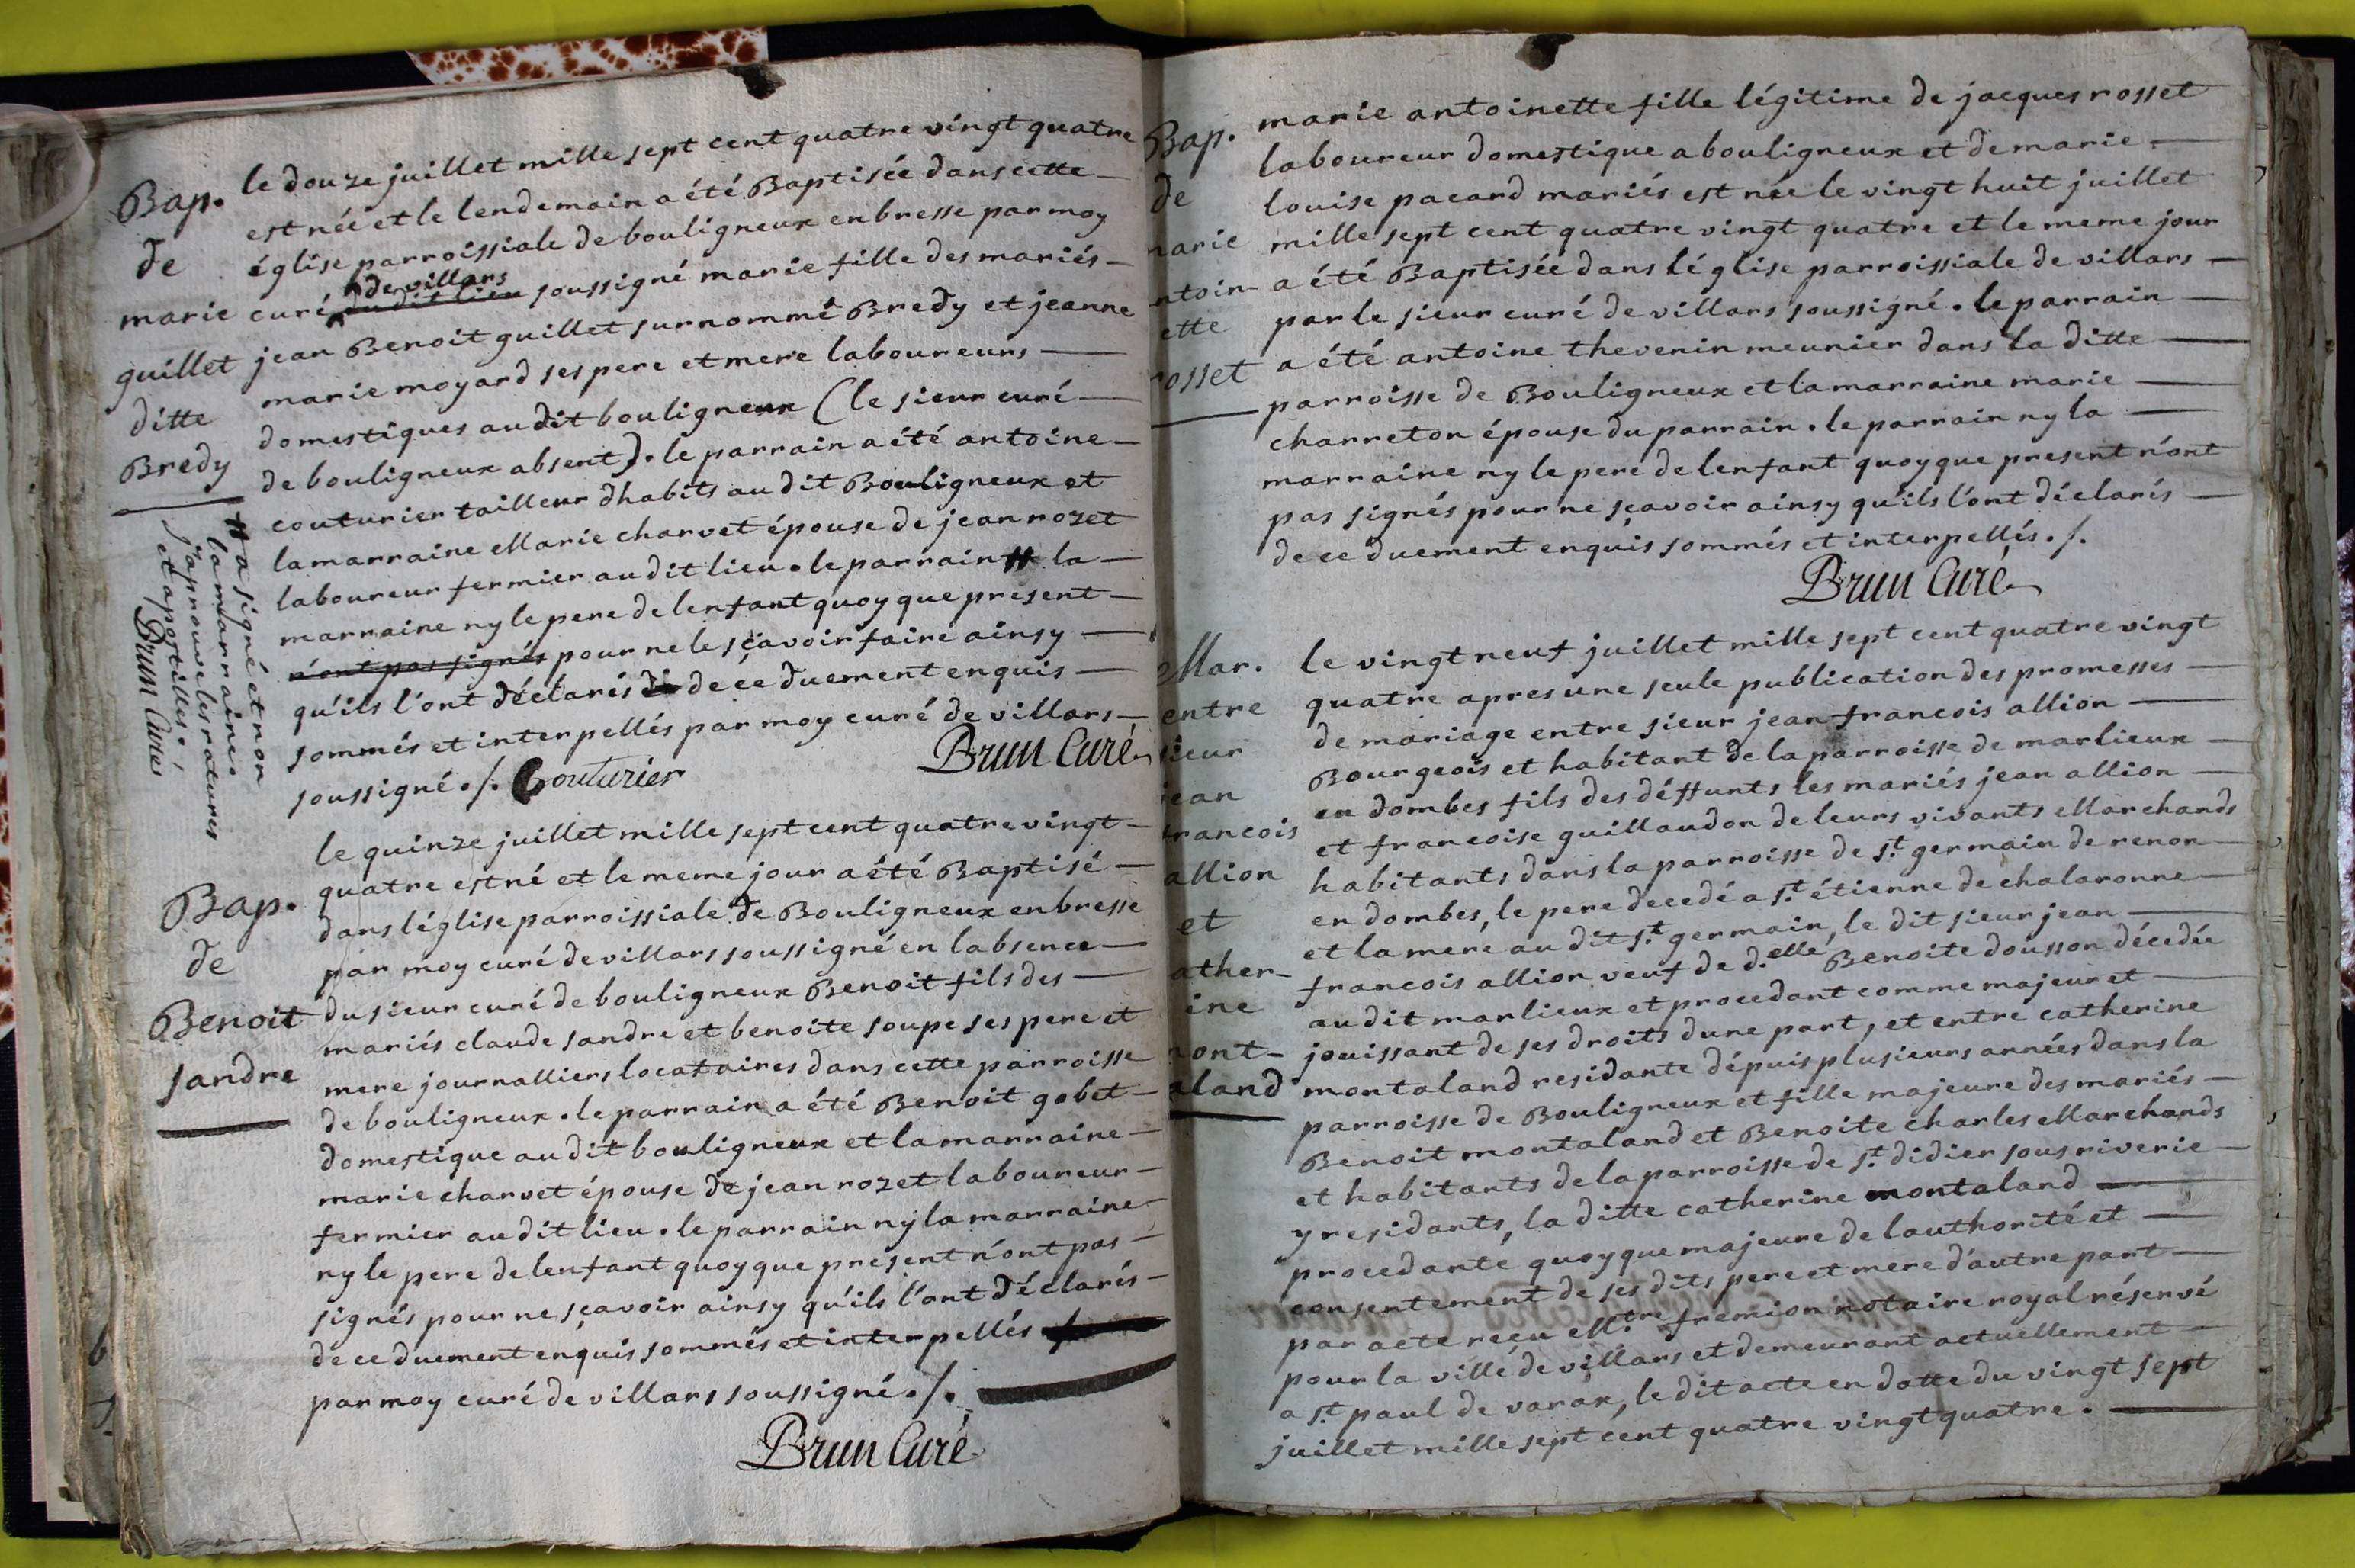 Bap.
de
marie
guillet
ditte
Bredy
le douze juillet mille sept cent quatre vingt quatre
est née et le lendemain a été Baptisée dans cette
église parroissiale de bouligneux en bresse par moy
de villars
curé du dit lieu soussigné marie fille des mariés
jean Benoit guillet surnommé Bredy et jeanne
marie moyard ses pere et mere laboureurs
domestiques au dit bouligneux (le sieur curé
de bouligneux absent). le parrain a été antoine
couturier tailleur dhabits au dit Bouligneux et
la marraine Marie charvet épouse de jean rozet
laboureur fermier au dit lieu. le parrain # la
marraine ny le pere de lenfant quoyque present
n'ont pas signés pour ne le sçavoir faire ainsy
qu'ils l'ont déclarés di de ce duement enquis
sommés et interpellés par moy curé de villars
soussigné ./. Couturier
Brun Curé
# a signé et non
la marraine.
j'aprouve les ratures
et apostilles.
Brun Curé
Bap.
de
Benoit
sandre
le quinze juillet mille sept cent quatre vingt
quatre est né et le meme jour a été Baptisé
dans léglise parroissiale de Bouligneux en bresse
par moy curé de villars soussigné en labsence
du sieur curé de bouligneux Benoit fils des
mariés claude sandre et benoite soupe ses pere et
mere journalliers locataires dans cette parroisse
de bouligneux. le parrain a été Benoit gobet
domestique au dit bouligneux et la marraine
marie charvet épouse de jean rozet laboureur
fermier au dit lieu. le parrain ny la marraine
ny le pere de lenfant quoyque present n'ont pas
signés pour ne sçavoir ainsy qu'ils l'ont déclarés
de ce duement enquis sommés et interpellés
par moy curé de villars soussigné ./.
Brun Curé
Bap.
de
marie
antoin-
ette
rosset
marie antoinette fille légitime de jacques rosset
laboureur domestique a bouligneux et de marie
louise pacard mariés est née le vingt huit juillet
mille sept cent quatre vingt quatre et le meme jour
a été Baptisée dans léglise parroissiale de villars
par le sieur curé de villars soussigné. le parrain
a été antoine thevenin meunier dans la ditte
parroisse de Bouligneux et la marraine marie
charreton épouse du parrain. le parrain ny la
marraine ny le pere de lenfant quoyque present n'ont
pas signés pour ne sçavoir ainsy qu'ils l'ont déclarés
de ce duement enquis sommés et interpellés ./.
Brun Curé
Mar.
entre
sieur
jean
francois
allion
et
cather-
ine
mont-
aland
le vingt neuf juillet mille sept cent quatre vingt
quatre apres une seule publication des promesses
de mariage entre sieur jean francois allion
Bourgeois et habitant de la parroisse de marlieux
en dombes fils des déffunts les mariés jean allion
et francoise guillaudon de leurs vivants Marchands
habitants dans la parroisse de st. germain de renon
en dombes, le pere decedé a st. étienne de chalaronne
et la mere au dit st. germain, le dit sieur jean
francois allion veuf de d.elle Benoite dousson décedée
au dit marlieux et procedant comme majeur et
jouissant de ses droits dune part, et entre catherine
montaland residante dépuis plusieurs années dans la
parroisse de Bouligneux et fille majeure des mariés
Benoit montaland et Benoite charles Marchands
et habitants de la parroisse de st. didier sous riverie
y residants, la ditte catherine montaland
procedante quoyque majeure de lauthorité et
consentement de ses dits pere et mere d'autre part
par acte reçu M.tre fremion notaire royal réservé
pour la ville de villars et demeurant actuellement
a st. paul de varax, le dit acte en datte du vingt sept
juillet mille sept cent quatre vingt quatre.